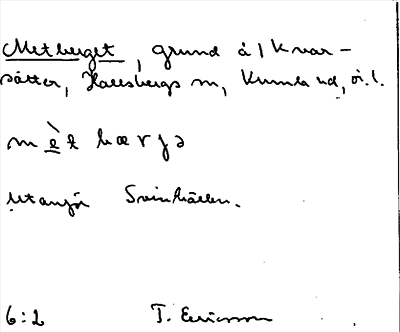 Metberget, grund å/ Kvar-
sätter, Hallsbergs sn, Kumla hd, ör.l.
mèt bærjə
utanför Svinhällen.
6:2 T. Ericsson